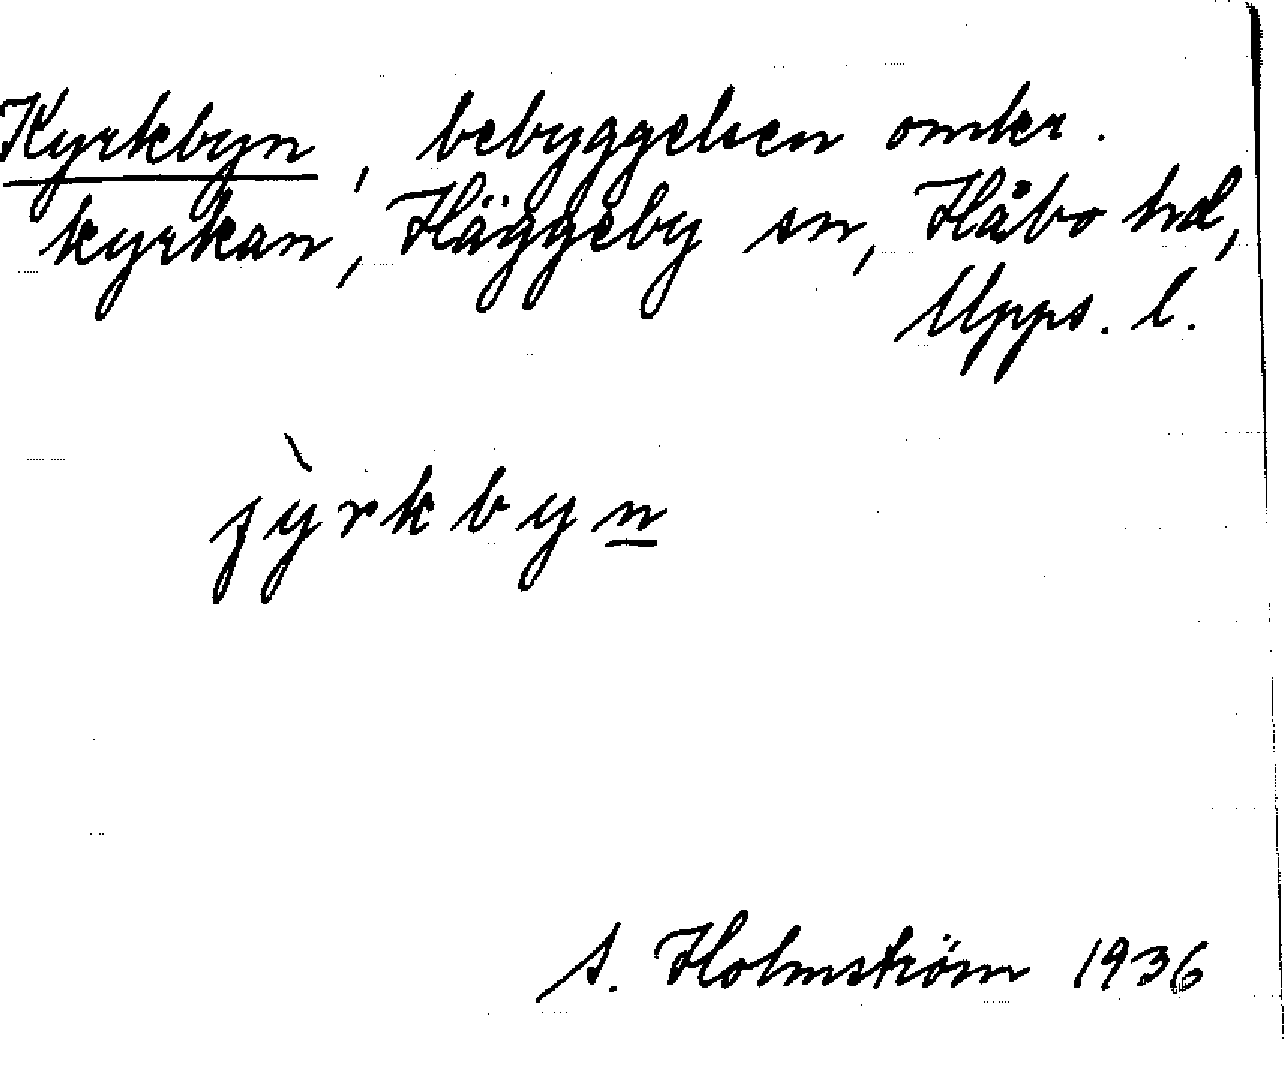 Kyrkbyn, bebyggelsen omkr.
kyrkan, Häggeby sn, Håbo hd,
Upps. l.
jỳrkbyn
S. Holmström 1936